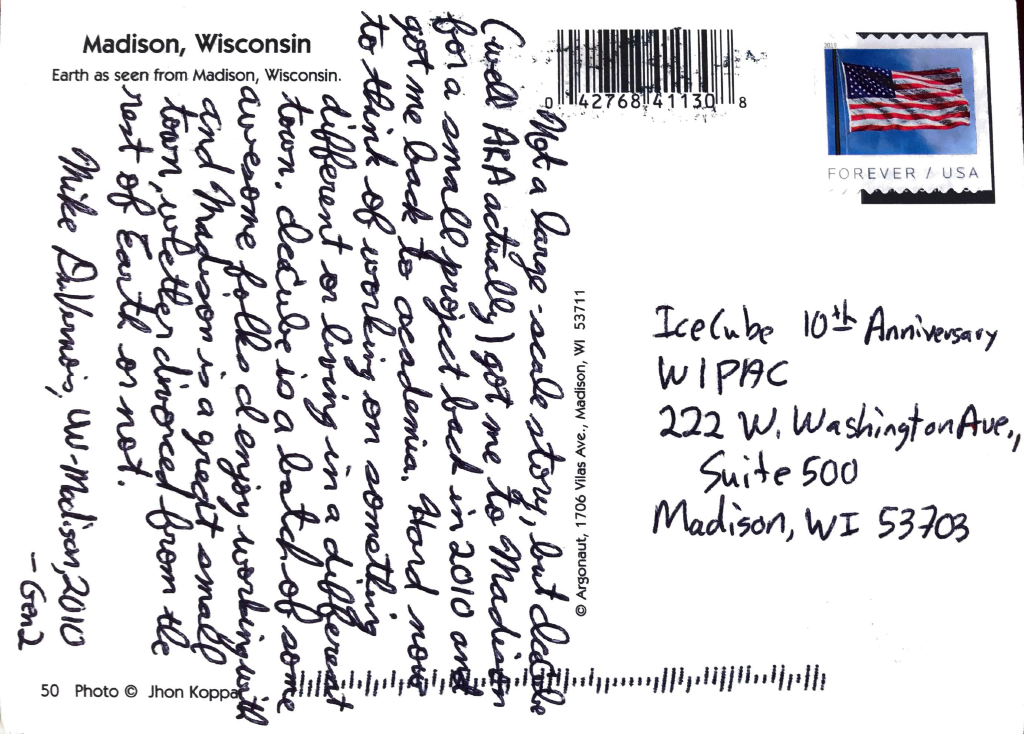 Madison, Wisconsin
Earth as seen from Madison, Wisconsin.
0 42768 41130 8
2019
FOREVER / USA
Not a large-scale story, but IceCube
(well ARA actually) got me to Madison
for a small project back in 2010 and
got me back to academia. Hard now
to think of working on something
different or living in a different
town. IceCube is a batch of some
awesome folks I enjoy working with
and Madison is a great small
town, whether divorced from the
rest of Earth or not.
Mike DuVernois, UW-Madison, 2010
- Gen2
© Argonaut, 1706 Vilas Ave., Madison, WI 53711
IceCube 10th Anniversary
WIPAC
222 W. Washington Ave.,
Suite 500
Madison, WI 53703
50 Photo © Jhon Koppa